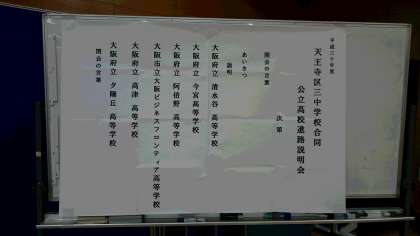 平成三十年度
天王寺区三中学校合同
公立高校進路説明会
次第
開会の言葉
あいさつ
説明
大阪府立 清水谷 高等学校
大阪府立 今宮 高等学校
大阪府立 阿倍野 高等学校
大阪市立大阪ビジネスフロンティア高等学校
大阪府立 高津 高等学校
大阪府立 夕陽丘 高等学校
閉会の言葉